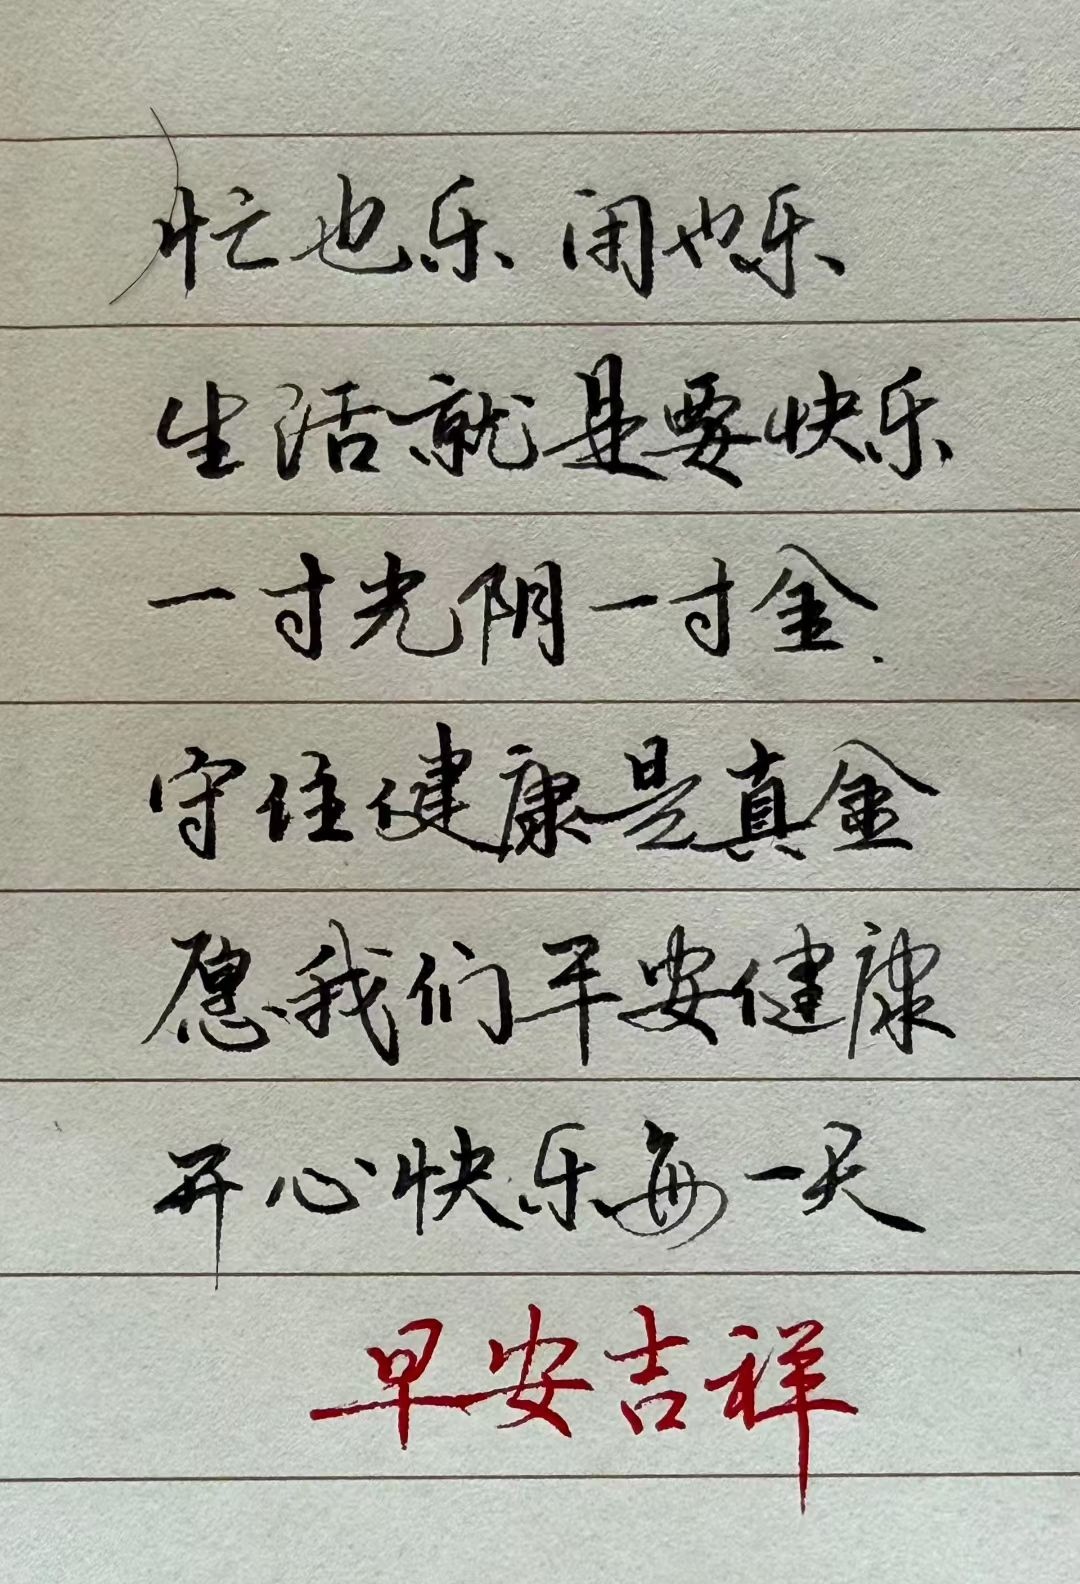 忙也乐 闲也乐
生活就是要快乐
一寸光阴一寸金
守住健康是真金
愿我们平安健康
开心快乐每一天
早安吉祥